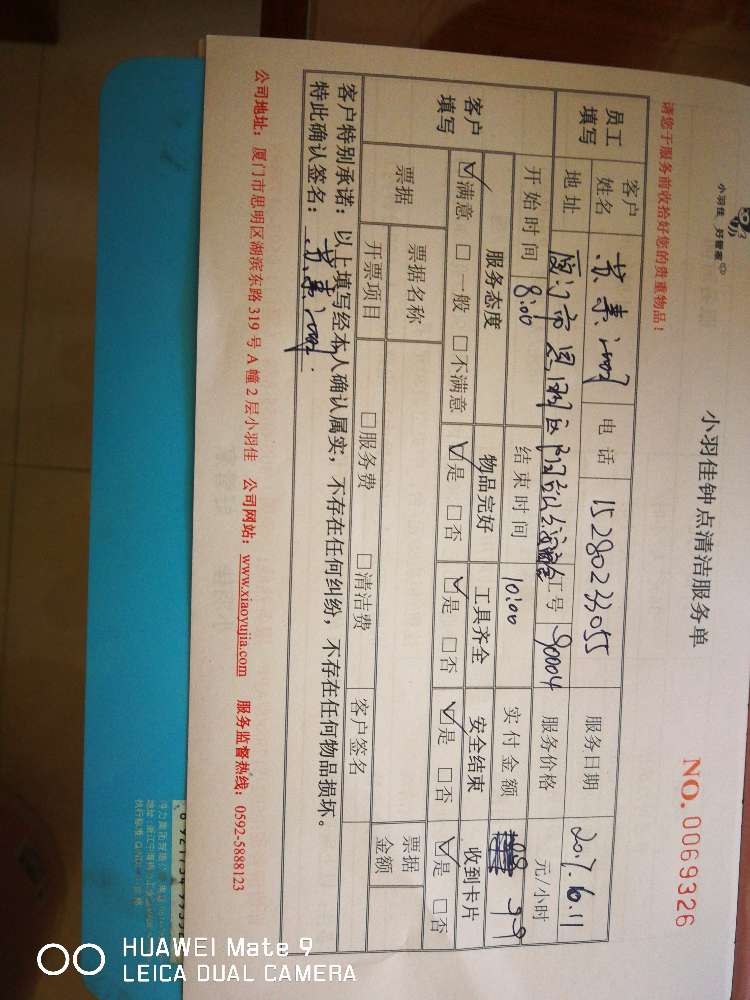 小羽佳 好管家
小羽佳钟点清洁服务单
NO. 0069326
请您于服务前收拾好您的贵重物品！
员工填写 客户姓名 电话 15280233055 服务日期 2017.6.11
地址 厦门市思明区 工号 90004 服务价格 元/小时
客户填写 开始时间 8:00 结束时间 10:00 实付金额 99
服务态度 物品完好 工具齐全 安全结束 收到卡片
☑满意 □一般 □不满意 ☑是 □否 ☑是 □否 ☑是 □否 ☑是 □否
票据 票据名称 票据金额
开票项目 □服务费 □清洁费 客户签名
客户特别承诺：以上填写经本人确认属实，不存在任何纠纷，不存在任何物品损坏。
特此确认签名：
公司地址：厦门市思明区湖滨东路 319 号 A 幢 2 层小羽佳 公司网站：www.xiaoyujia.com 服务监督热线：0592-5888123
HUAWEI Mate 9
LEICA DUAL CAMERA